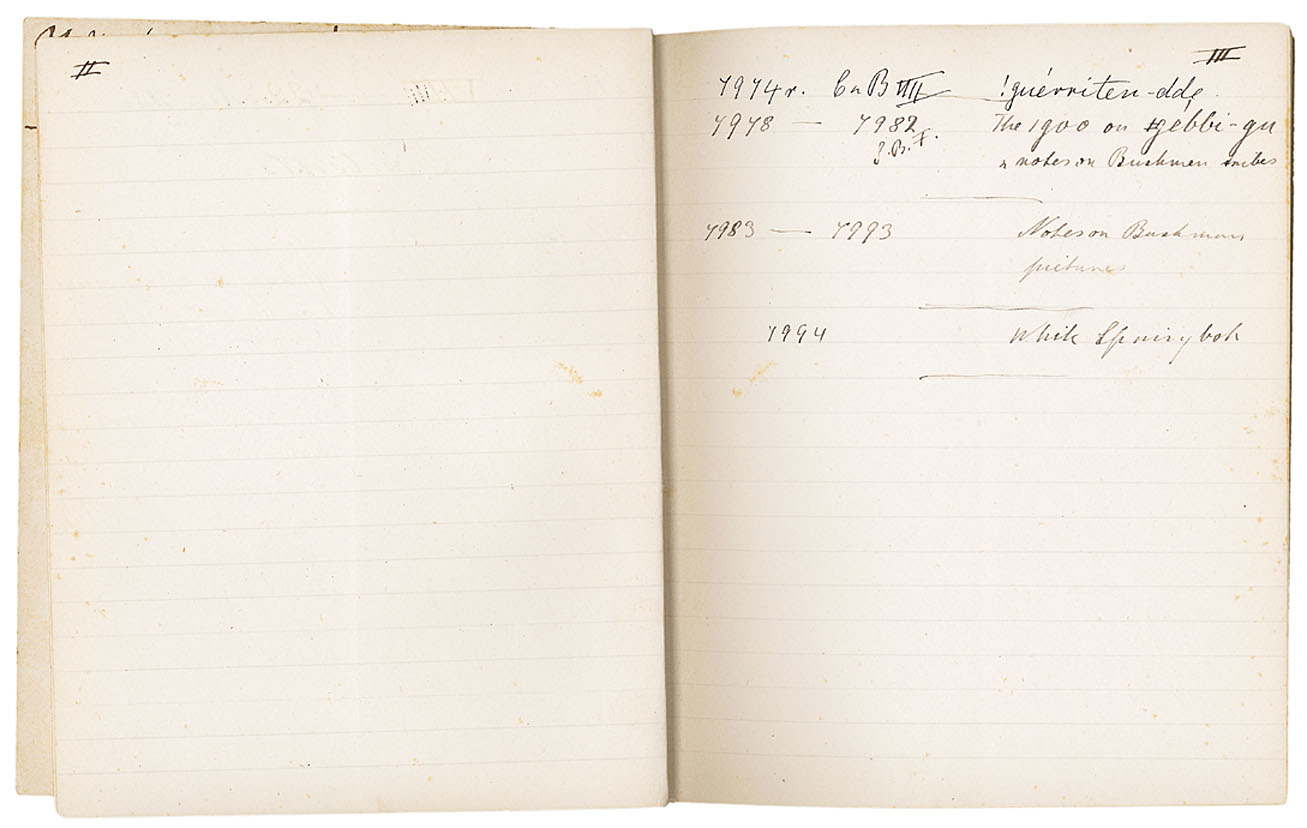 II
III
7974r. C n B VIII !guérriten-ddé
7978 — 7982 The !goo on ǂgébbi-gu
J.B.F. & notes on Bushmen tribes
7983 — 7993 Notes on Bushman
pictures
7994 White Springbok